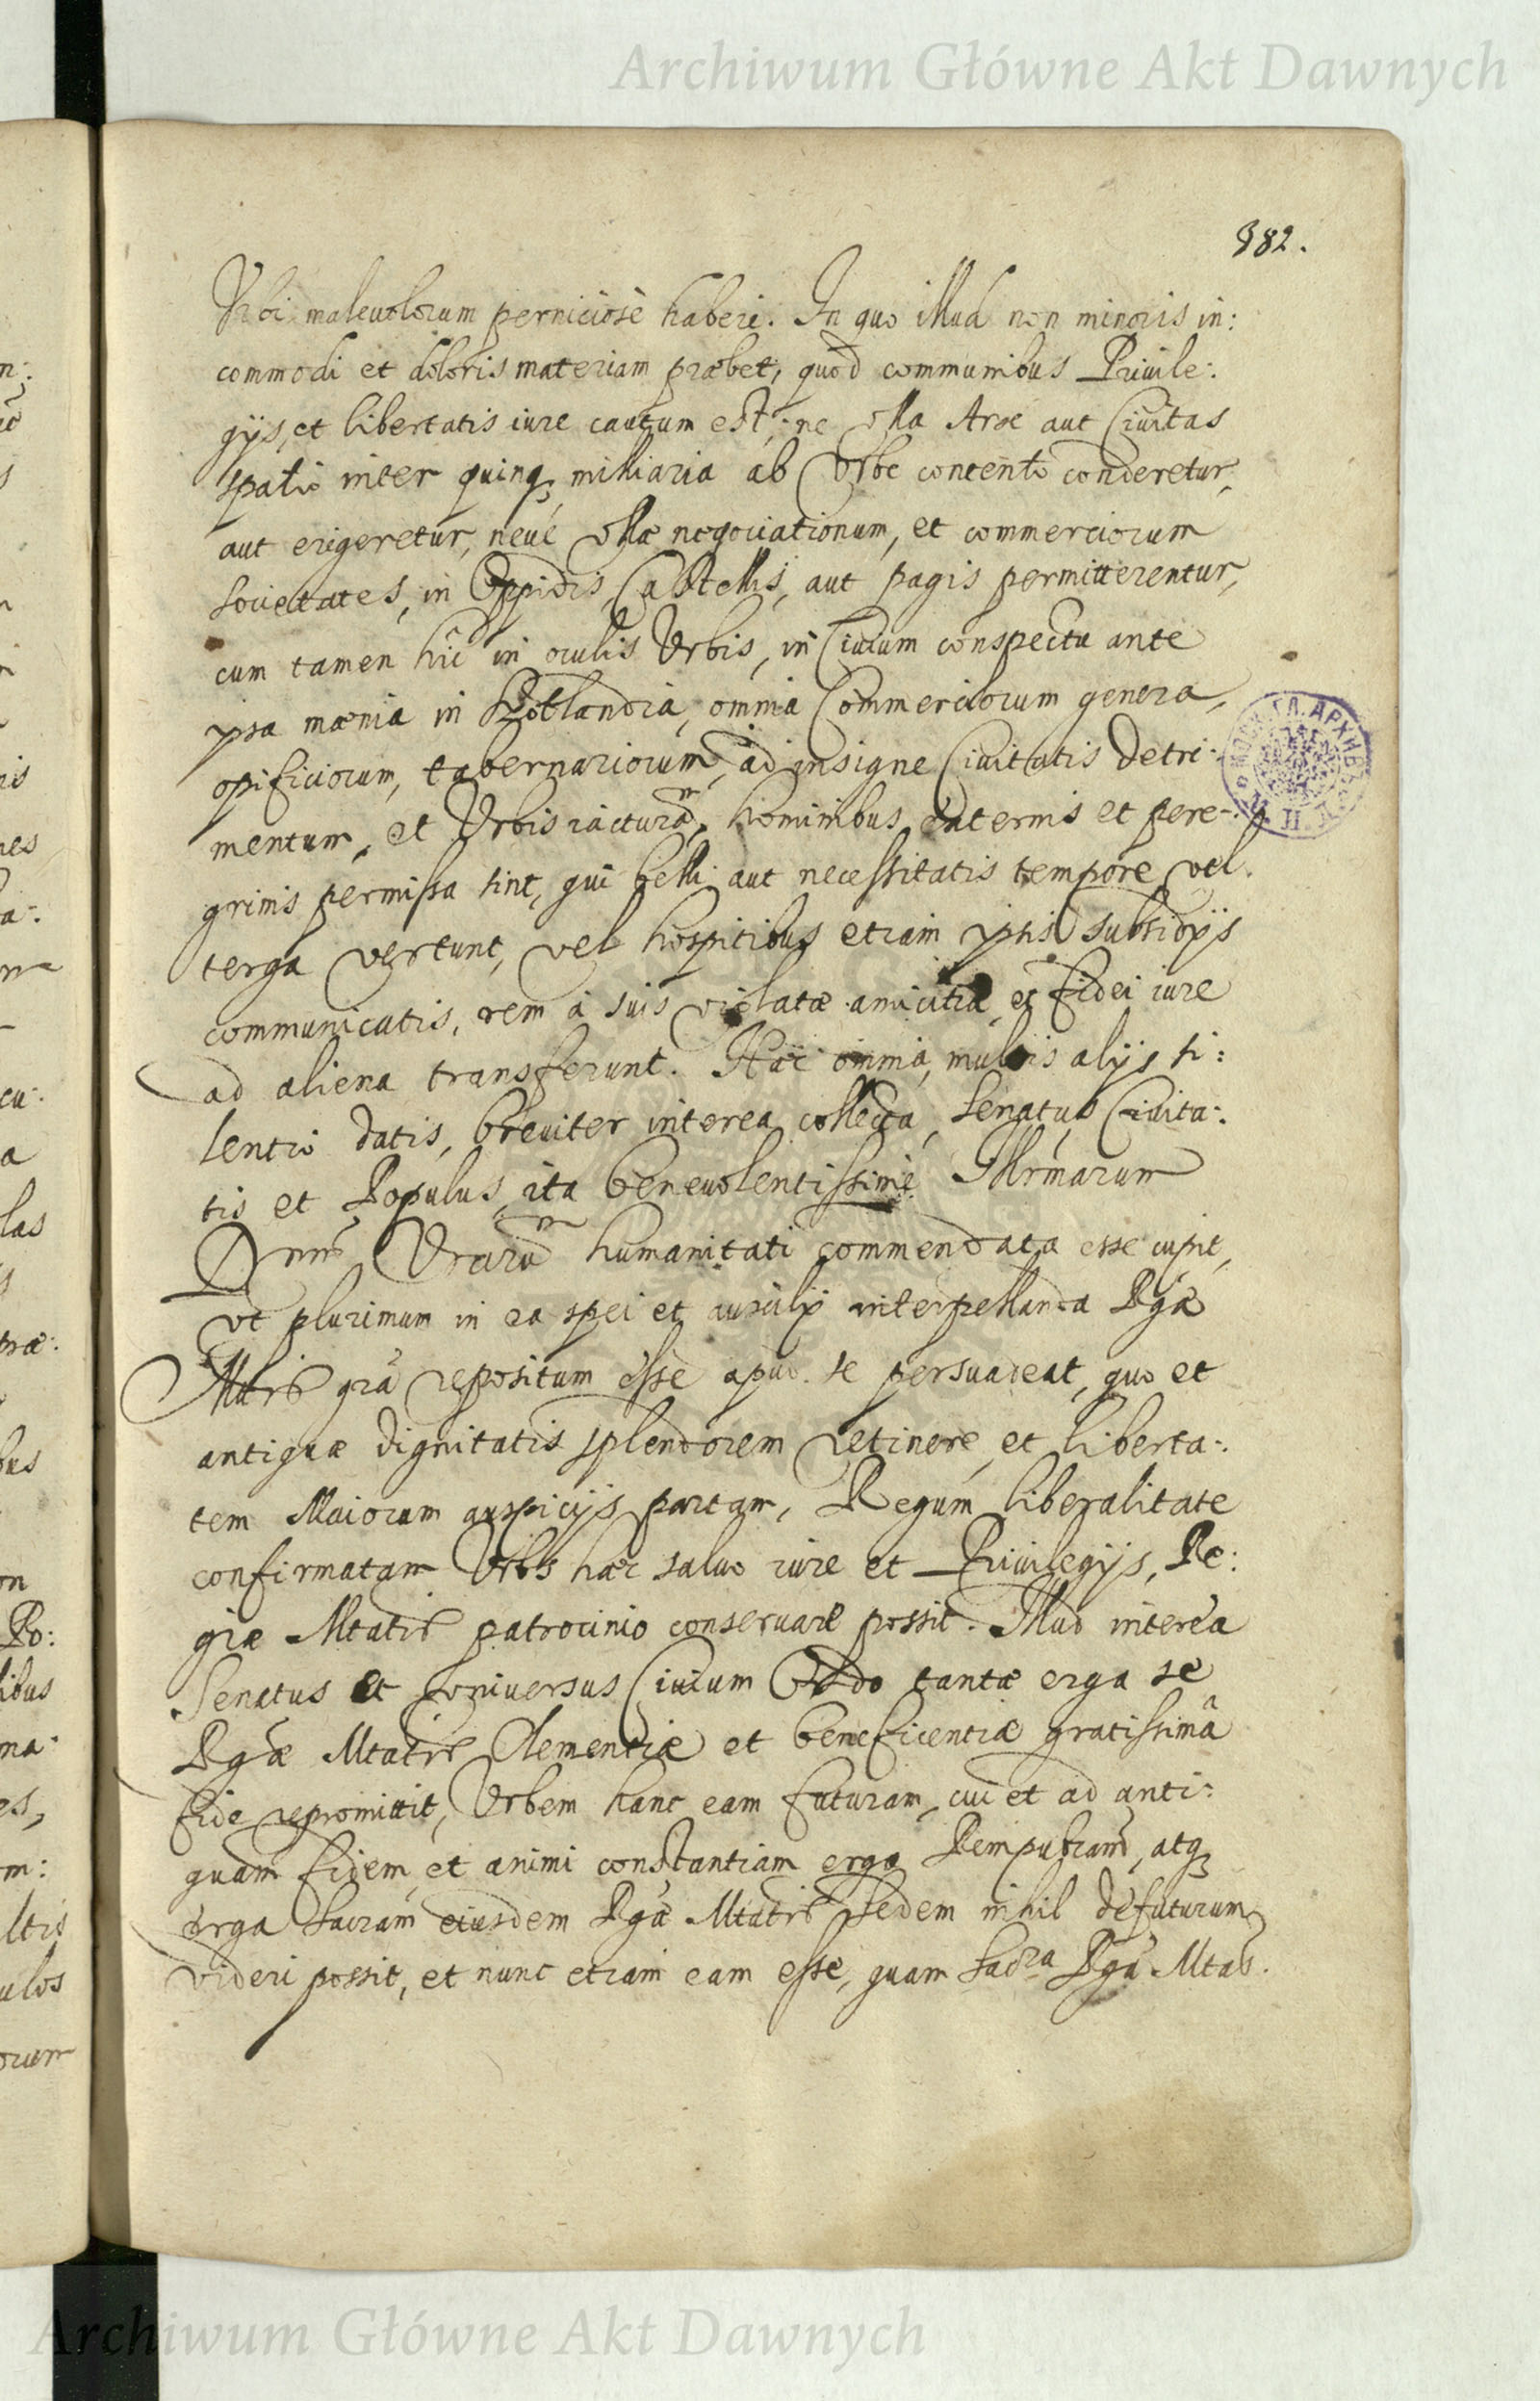 Archiwum Główne Akt Dawnych
382.
Urbi malevolorum perniciosè haberi. In quo illud non minoris in:
commodi et doloris materiam præbet, quod communibus Privile:
gijs, et libertatis iure cautum est, ne vlla Arx aut Civitas
spatio inter quinq milliaria ab Vrbe contento conderetur,
aut erigeretur, neue vllæ negociationum, et commerciorum
societates, in Oppidis, Castellis, aut pagis permitterentur,
cum tamen hîc in oculis Vrbis, in Ciuium conspectu ante
ipsa mænia in Kotlandia, omnia Commerciorum genera,
opificiorum, tabernariorum, ad insigne Civitatis detri:
mentum, et Vrbis iacturam, hominibus externis et pere-
grinis permissa sint, qui belli aut necessitatis tempore vel
terga vertunt, vel hospitibus etiam ipsis subsidijs
communicatis, rem à suis violatæ amicitiæ et fidei iure
ad aliena transferunt. Hæc omnia, multis alijs si:
lentio datis, breuiter interea collecta, Senatus Civita:
tis et Populus, ita beneuolentissimè Illrmarum
Dnm Vrarum humanitati commendata esse cupit,
vt plurimum in ea spei et auxilij interpellanda Rgæ
Mttis grã repositum esse apud se persuadeat, quo et
antiquæ dignitatis splendorem retinere, et liberta:
tem Maiorum auspicijs partam, Regum liberalitate
confirmatam Vrbs hæc saluo iure et Priuilegijs, Re:
giæ Mtatis patrocinio conseruare possit. Illud interea
Senatus et vniuersus Ciuium Ordo tantæ erga se
Rgæ Mtatis Clementiæ et beneficentiæ gratissimâ
fide repromittit, Vrbem hanc eam futuram, cui et ad anti:
quam fidem, et animi constantiam erga Rempublcam, atq
erga Sacram eiusdem Rgæ Mtatis sedem nihil defuturum
videri possit, et nunc etiam eam esse, quam Sacra Rga Mtas.
Archiwum Główne Akt Dawnych